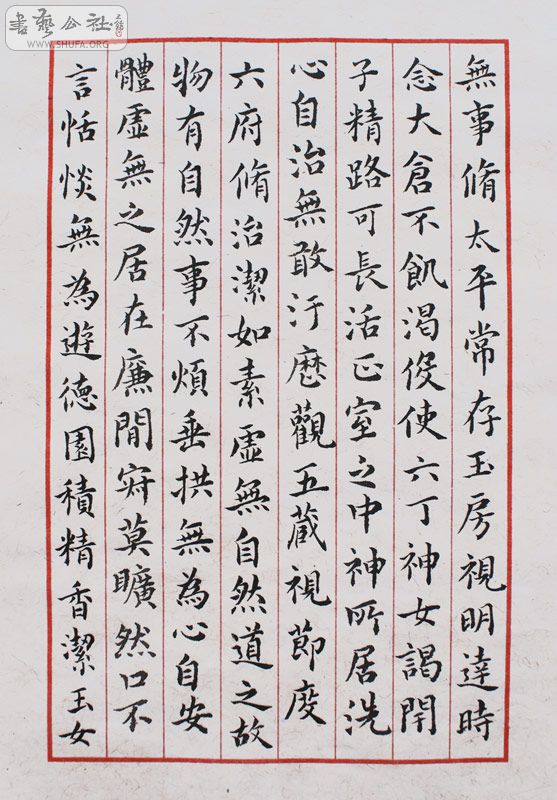 書藝公社
WWW.SHUFA.ORG
無事脩太平常存玉房視明達時
念大倉不飢渴役使六丁神女謁閇
子精路可長活正室之中神所居洗
心自治無敢汙歷觀五藏視節度
六府脩治潔如素虛無自然道之故
物有自然事不煩垂拱無為心自安
體虛無之居在廉閒寂莫曠然口不
言恬惔無為遊德園積精香潔玉女